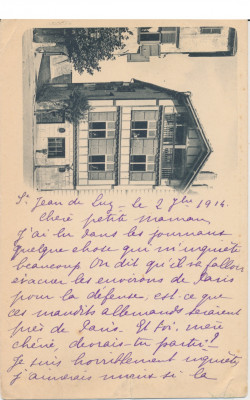 St Jean de Luz - le 2 7bre 1914.
Chère petite maman,
J'ai lu dans les journaux
quelque chose qui m'inquiète
beaucoup. On dit qu'il va falloir
évacuer les environs de Paris
pour la défense, est-ce que
ces maudits allemands seraient
près de Paris. Et toi, mère
chérie, devrais-tu partir?
Je suis horriblement inquiète,
j'aimerais mieux si la